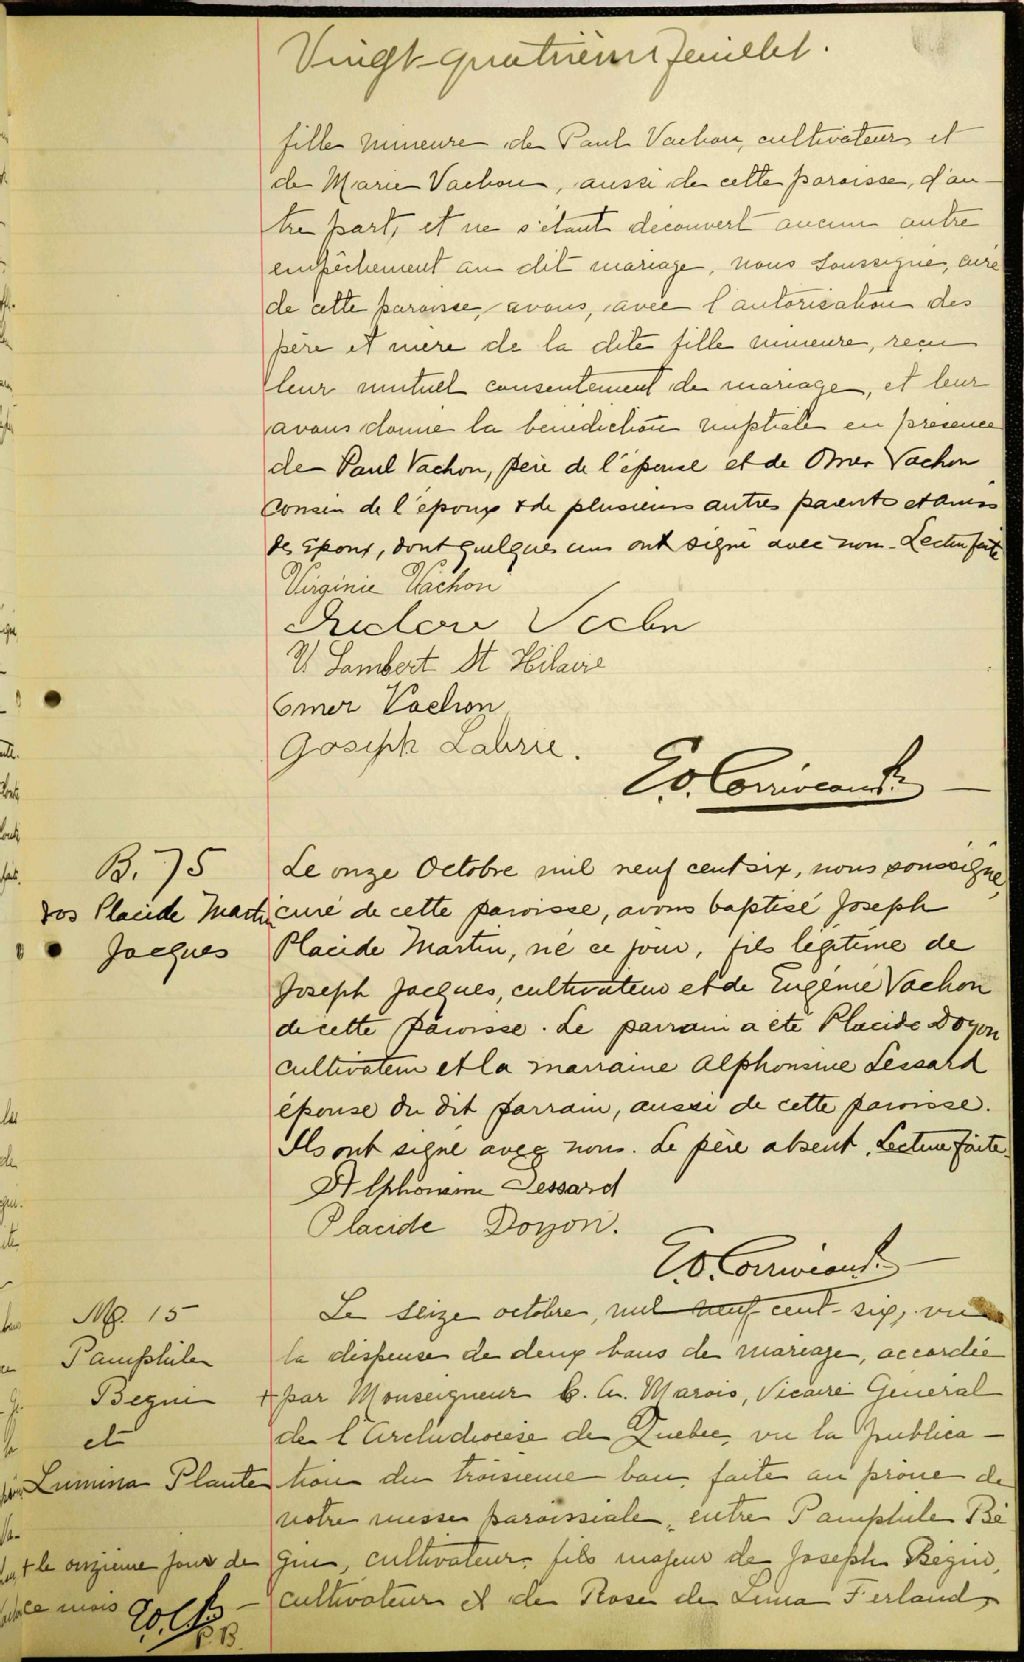 Vingt-quatrième feuillet.
fille mineure de Paul Vachon, cultivateur et
de Marie Vachon, aussi de cette paroisse, d'au-
tre part, et ne s'étant découvert aucun autre
empêchement au dit mariage, nous soussigné, curé
de cette paroisse, avons, avec l'autorisation des
père et mère de la dite fille mineure, reçu
leur mutuel consentement de mariage, et leur
avons donné la bénédiction nuptiale en présence
de Paul Vachon, père de l'épouse et de Omer Vachon
cousin de l'époux & de plusieurs autres parents et amis
des époux, dont quelques uns ont signé avec nous. Lecture faite
Virginie Vachon
Vachon
Lambert St Hilaire
Omer Vachon
Joseph Labrie.
E.O. Corriveau Ptre
B. 75
Jos Placide Martin
Jacques
Le onze Octobre mil neuf cent six, nous soussigné,
curé de cette paroisse, avons baptisé Joseph
Placide Martin, né ce jour, fils légitime de
Joseph Jacques, cultivateur et de Eugénie Vachon
de cette paroisse. Le parrain a été Placide Doyon
cultivateur et la marraine Alphonsine Lessard
épouse du dit parrain, aussi de cette paroisse.
Ils ont signé avec nous. Le père absent. Lecture faite.
Alphonsine Lessard
Placide Doyon.
E.O. Corriveau Ptre
M. 15
Pamphile
Begin
et
Lumina Plante
Le seize octobre, mil neuf cent-six, vu
la dispense de deux bans de mariage, accordée
+ par Monseigneur C. A. Marois, Vicaire Général
de l'Archidiocèse de Québec, vu la publica-
tion du troisième ban, faite au prône de
notre messe paroissiale, entre Pamphile Bé-
gin, cultivateur, fils majeur de Joseph Bégin,
cultivateur et de Rose de Lima Ferland,
+ le onzième jour de
ce mois E.O.C. Ptre
P.B.